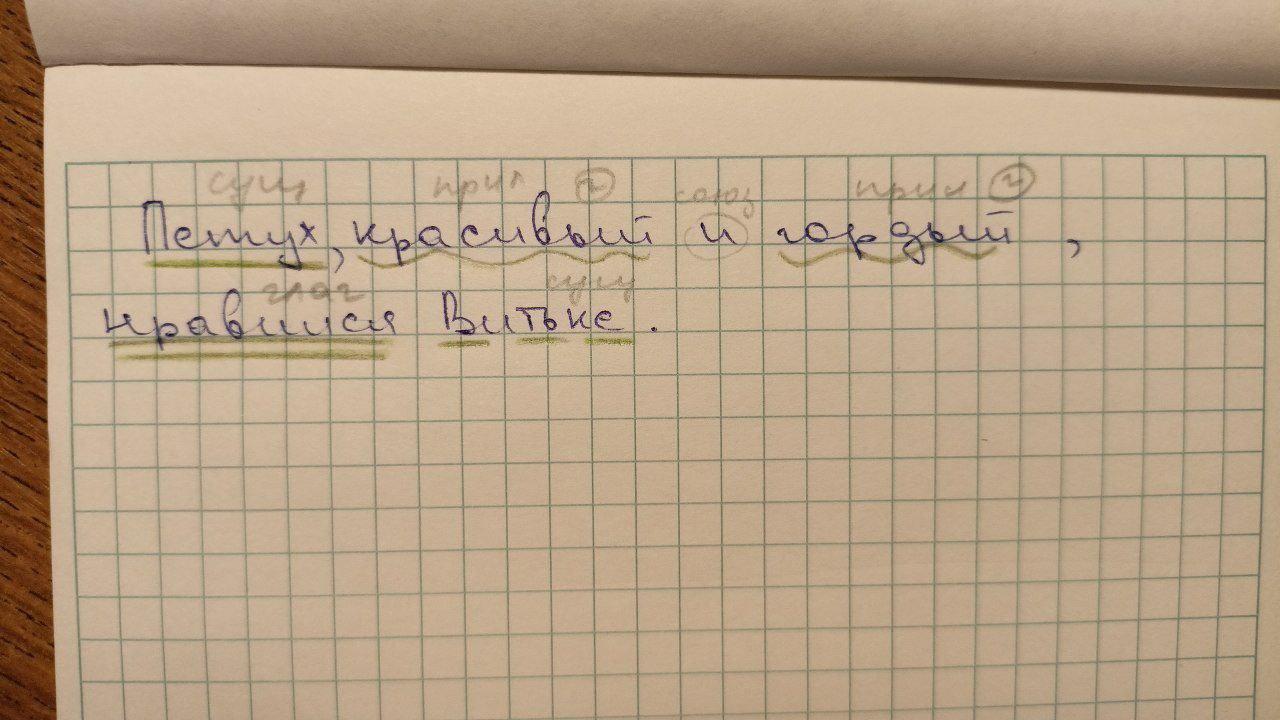 сущ прил 2 союз прил 2
Петух, красивый и гордый ,
глаг сущ
нравился Витьке .